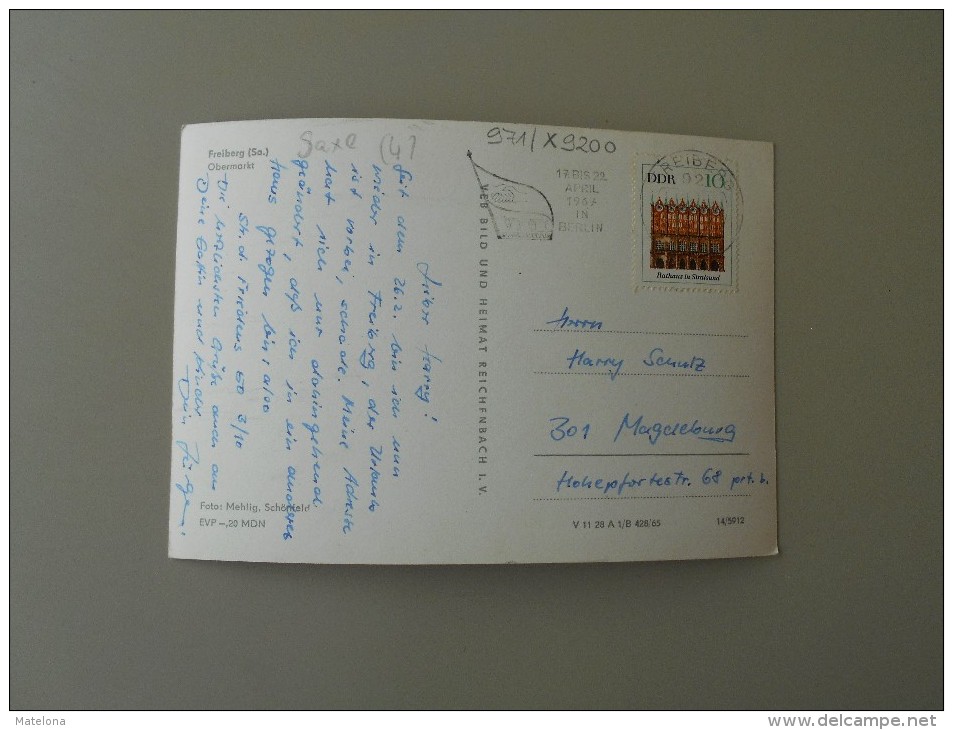 Freiberg (Sa.)
Obermarkt
Saxe (4)
971/X9200
17. BIS 22.
APRIL
1967
IN
BERLIN
FREIBERG
92
DDR 10
Rathaus in Stralsund
Lieber Harry!
Seit dem 26.2. bin ich nun
wieder in Freiberg, der Urlaub
ist vorbei, schade. Meine Adresse
hat sich nur dahingehend
geändert, daß ich in ein anderes
Haus gezogen bin, also
Str. d. Friedens 60 3/10
Die herzlichsten Grüße auch an
Deine Gattin und Kinder
Dein Jürgen
VEB BILD UND HEIMAT REICHENBACH I. V.
Herrn
Harry Schulz
301 Magdeburg
Hohepfortestr. 68 prt. b.
Foto: Mehlig, Schönfeld
EVP –,20 MDN
V 11 28 A 1/B 428/65
14/5912
Matelona
www.delcampe.net